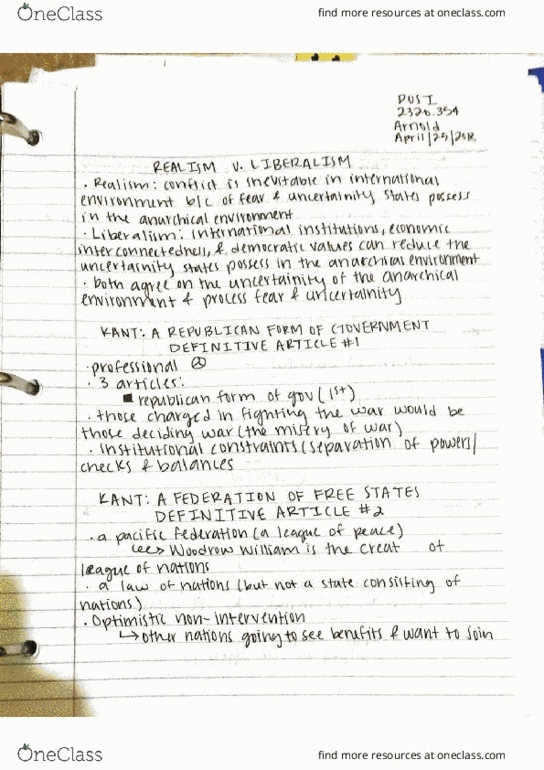 OneClass
find more resources at oneclass.com
POSI
2320.354
Arnold
April/25/2018
REALISM V. LIBERALISM
· Realism: conflict is inevitable in international
environment b/c of fear & uncertainity states possess
in the anarchical environment
· Liberalism: international institutions, economic
interconnectedness, & democratic values can reduce the
uncertainity states possess in the anarchical environment
· both agree on the uncertainity of the anarchical
environment & process fear & uncertainity
KANT: A REPUBLICAN FORM OF GOVERNMENT
DEFINITIVE ARTICLE #1
· professional ☮
· 3 articles:
■ republican form of gov (1st)
· those charged in fighting the war would be
those deciding war (the misery of war)
· institutional constraints (separation of powers/
checks & balances
KANT: A FEDERATION OF FREE STATES
DEFINITIVE ARTICLE #2
· a pacific federation (a league of peace)
Woodrow William is the creat of
league of nations
· a law of nations (but not a state consisting of
nations)
· Optimistic non-intervention
↳ other nations going to see benefits & want to join
OneClass
find more resources at oneclass.com